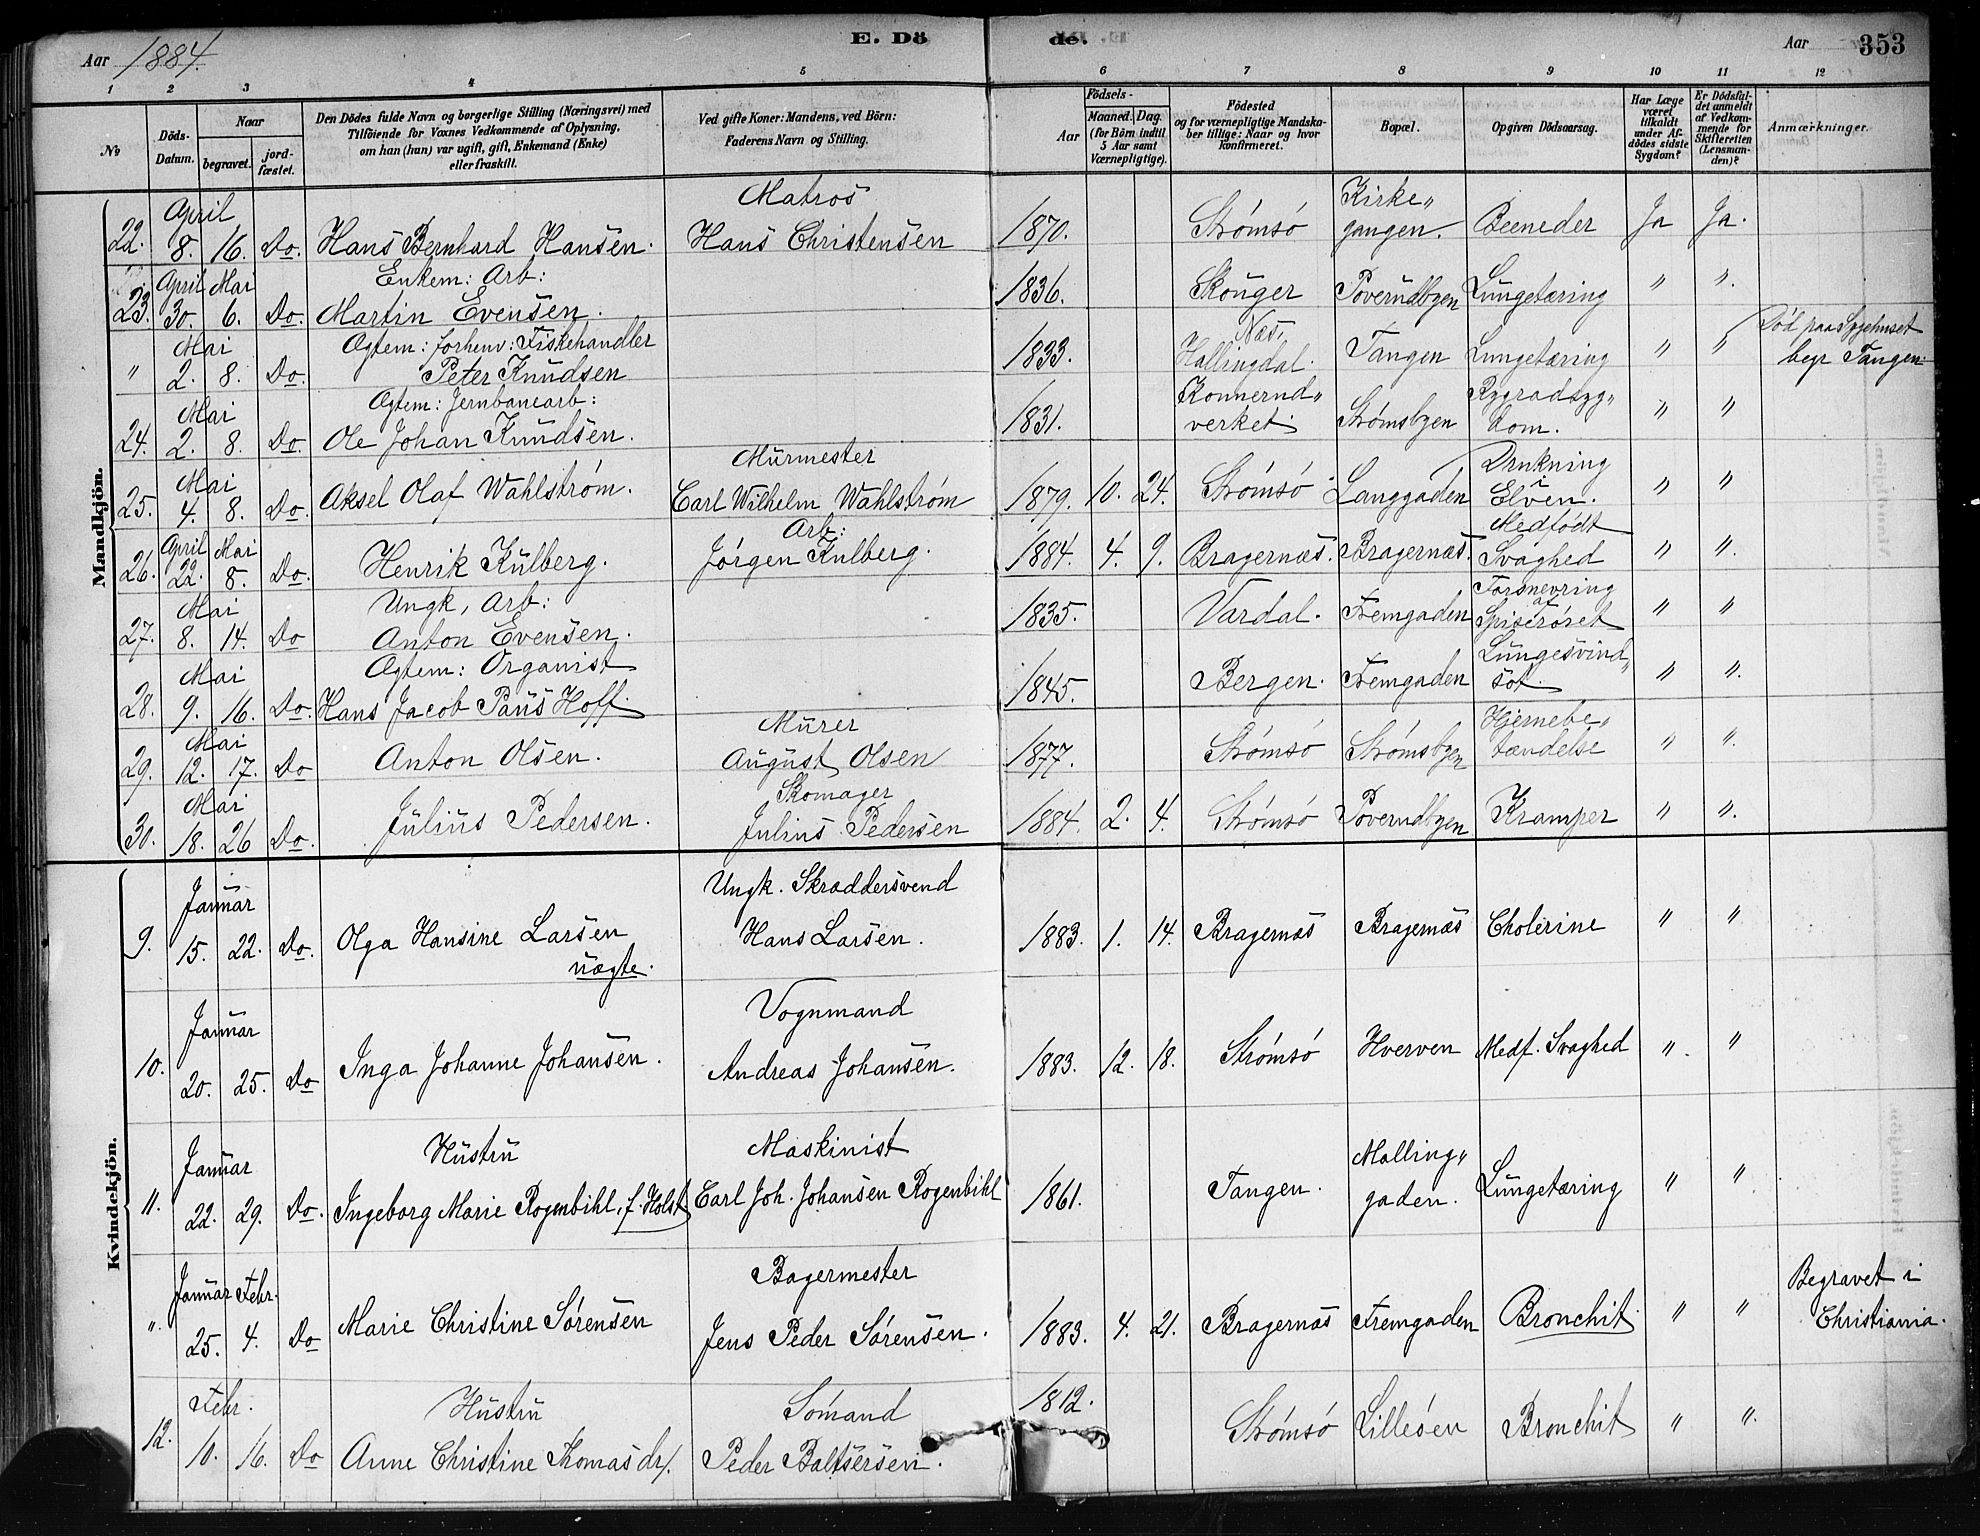 Aar 1884.
E. Dö
de.
Aar
353
1 2 3 4 5 6 7 8 9 10 11 12
No
Döds-Datum.
Naar
begravet.
jord-fæstet.
Den Dödes fulde Navn og borgerlige Stilling (Næringsvei) med
Tilföiende for Voxnes Vedkommende af Oplysning,
om han (hun) var ugift, gift, Enkemand (Enke)
eller fraskilt.
Ved gifte Koner: Mandens, ved Börn:
Faderens Navn og Stilling.
Födsels-
Aar
Maaned. Dag.
(for Börn indtil
5 Aar samt
Værnepligtige).
Födested
og for værnepligtige Mandska-
ber tillige: Naar og hvor
konfirmeret.
Bopæl.
Opgiven Dödsaarsag.
Har Læge
været
tilkaldt
under Af-
dödes sidste
Sygdom?
Er Dödsfal-
det anmeldt
af Vedkom-
mende for
Skifteretten
(Lensman-
den)?
Anmærkninger.
Mandkjön.
April Matros Kirke„
22. 8. 16. Do. Hans Bernhard Hansen. Hans Christensen 1870. Strømsø gangen. Beeneder Ja Ja.
April Mai Enkem: Arb:
23. 30. 6. Do. Martin Evensen. 1836. Skouger Poverudbyen Lungetæring " ".
Mai Ægtem: forhenv: Fiskehandler Næs, Død paa Sygehuset
" 2. 8. Do. Peter Knudsen 1833. Hallingdal. Tangen Lungetæring " " begr Tangen.
Mai Ægtem: Jernbanearb: Konnerud„ Rygradsyg„
24. 2. 8. Do. Ole Johan Knudsen. 1831. verket. Strømsbyen dom. " "
Mai Murmester Drukning
25. 4. 8. Do. Aksel Olaf Wahlstrøm. Carl Wilhelm Wahlstrøm 1879. 10. 24. Strømsø Langgaden i Elven. " "
April Mai Arb: Medfødt
26. 22. 8. Do. Henrik Kulberg. Jørgen Kulberg. 1884. 4. 9. Bragernæs. Bragernæs. Svaghed " ".
Mai Ungk, Arb: Forsnevring af
27. 8. 14. Do Anton Evensen. 1835. Vardal. Fremgaden Spiserøret " "
Mai Ægtem: Organist Lungesvind„
28. 9. 16. Do. Hans Jacob Paus Hoff. 1845. Bergen. Fremgaden sot. " ".
Mai Murer Hjernebe„
29. 12. 17. Do Anton Olsen. August Olsen 1877. Strømsø Strømsbyen tændelse " ".
Mai Skomager
30. 18. 26 Do. Julius Pedersen. Julius Pedersen 1884. 2. 4. Strømsø Poverudbyen Kramper " ".
Kvindekjön.
Januar Ungk. Skræddersvend
9. 15. 22. Do. Olga Hansine Larsen Hans Larsen. 1883. 1. 14. Bragernæs Bragernæs Cholerine " "
uægte.
Januar Vognmand
10. 20. 25. Do Inga Johanne Johansen. Andreas Johansen. 1883. 12. 18. Strømsø Hverven Medf. Svaghed " "
Januar Hustru Maskinist Malling„
11. 22. 29. Do. Ingeborg Marie Rogenbihl, f. Holst Carl Joh. Johansen Rogenbihl 1861. Tangen. gaden. Lungetæring " "
Januar Febr. Bagermester Begravet i
" 25. 4. Do Marie Christine Sørensen Jens Peder Sørensen. 1883. 4. 21. Bragernæs Fremgaden Bronchit. " " Christiania.
Febr. Hustru Sømand
12. 10. 16. Do Anne Christine Thomasdr. Peder Baltsersen. 1812. Strømsø Lilleøen Bronchit " ".